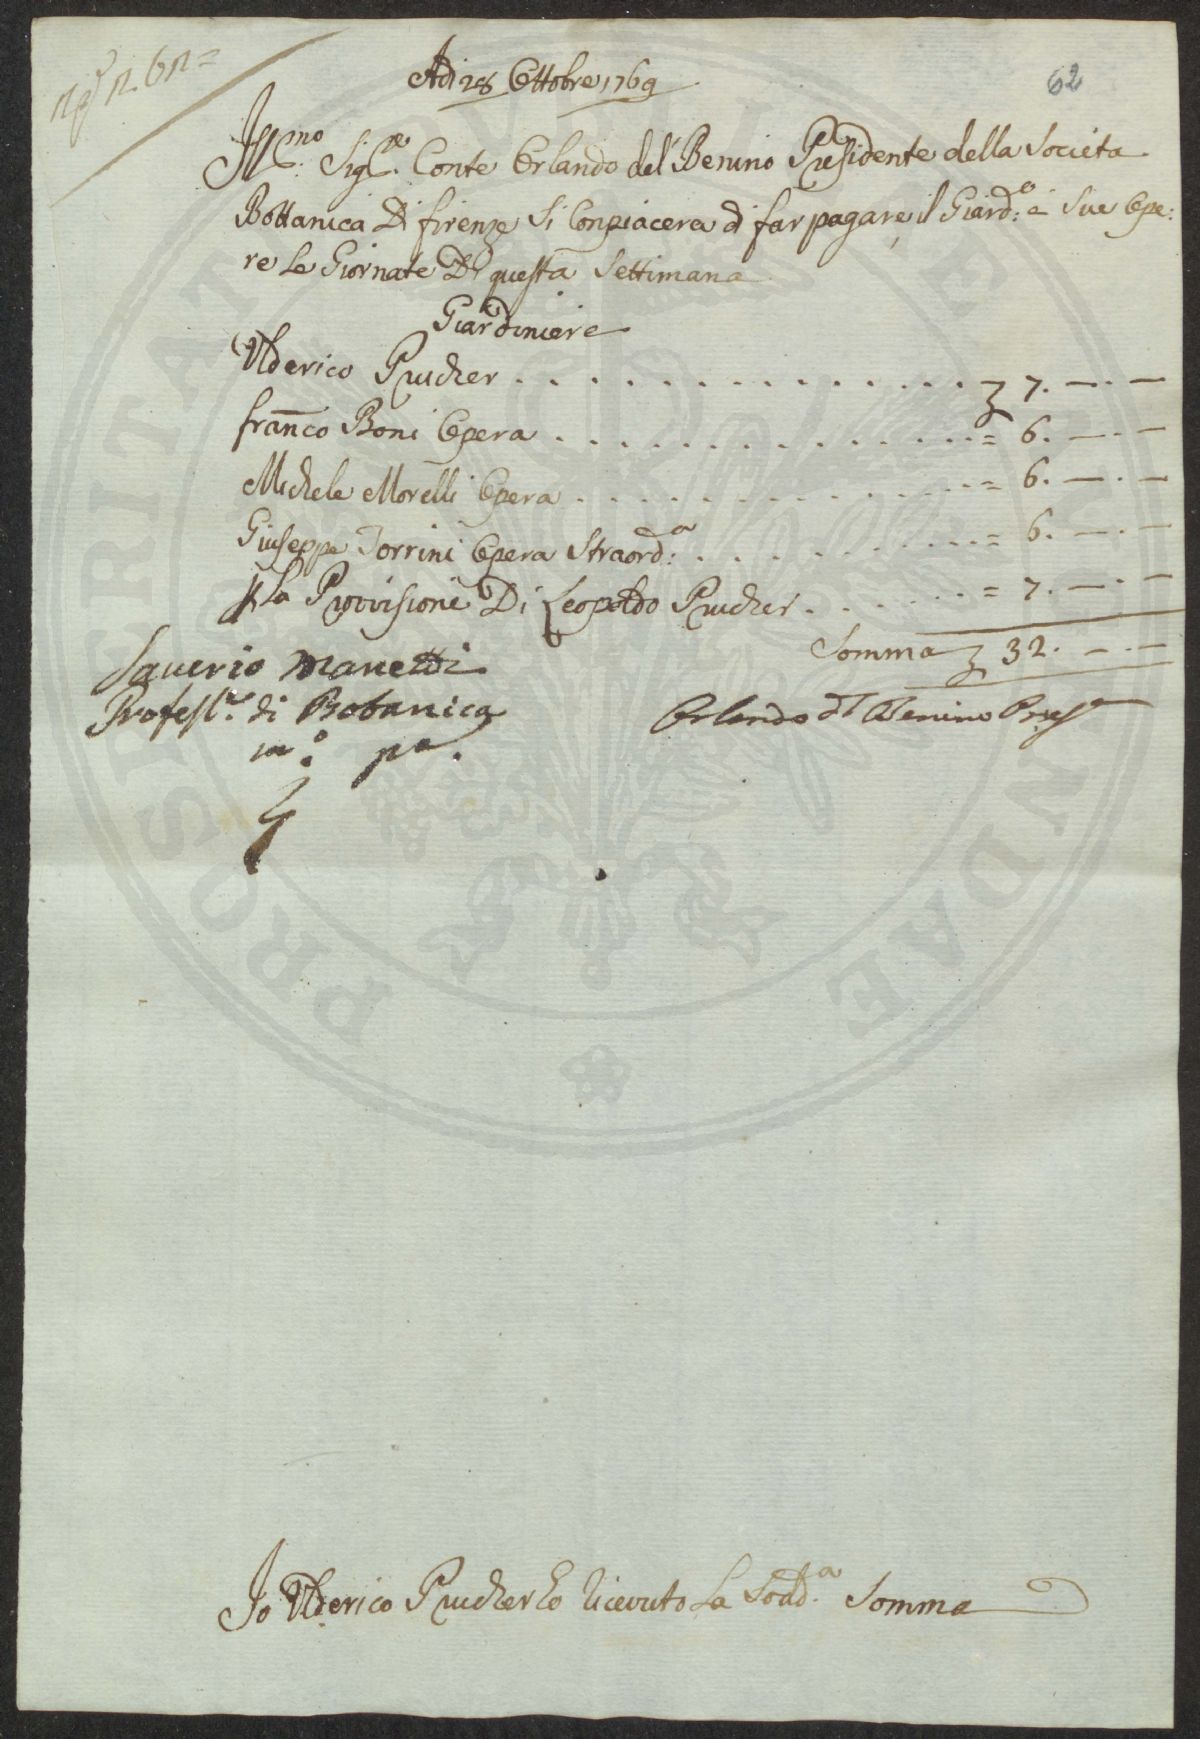 62
Adi 28 Ottobre 1769
Ill.mo Sig.re Conte Orlando del Benino Presidente della Societa
Bottanica Di firenze Si Conpiacera di far pagare il Giard:o e Sue Ope:
re Le Giornate Di questa Settimana
Giardiniere
Ulderico Prucher . . . . . . . . . . . . . 7. —.—
franco Boni Opera . . . . . . . . . . . . = 6. —.—
Michele Morelli Opera . . . . . . . . . . . = 6. —.—
Giuseppe Torrini Opera Straord:a . . . . . . . . = 6. —.—
La Provisione Di Leopoldo Prucher . . . . . . . = 7. —.—
Somma 32. —.—
Saverio Manetti
Profess.re di Botanica
m.o pa.
Orlando d Benino Pres
Io Ulderico Prucher ho Ricevuto La Sodd.a Somma
PROSPERITATI